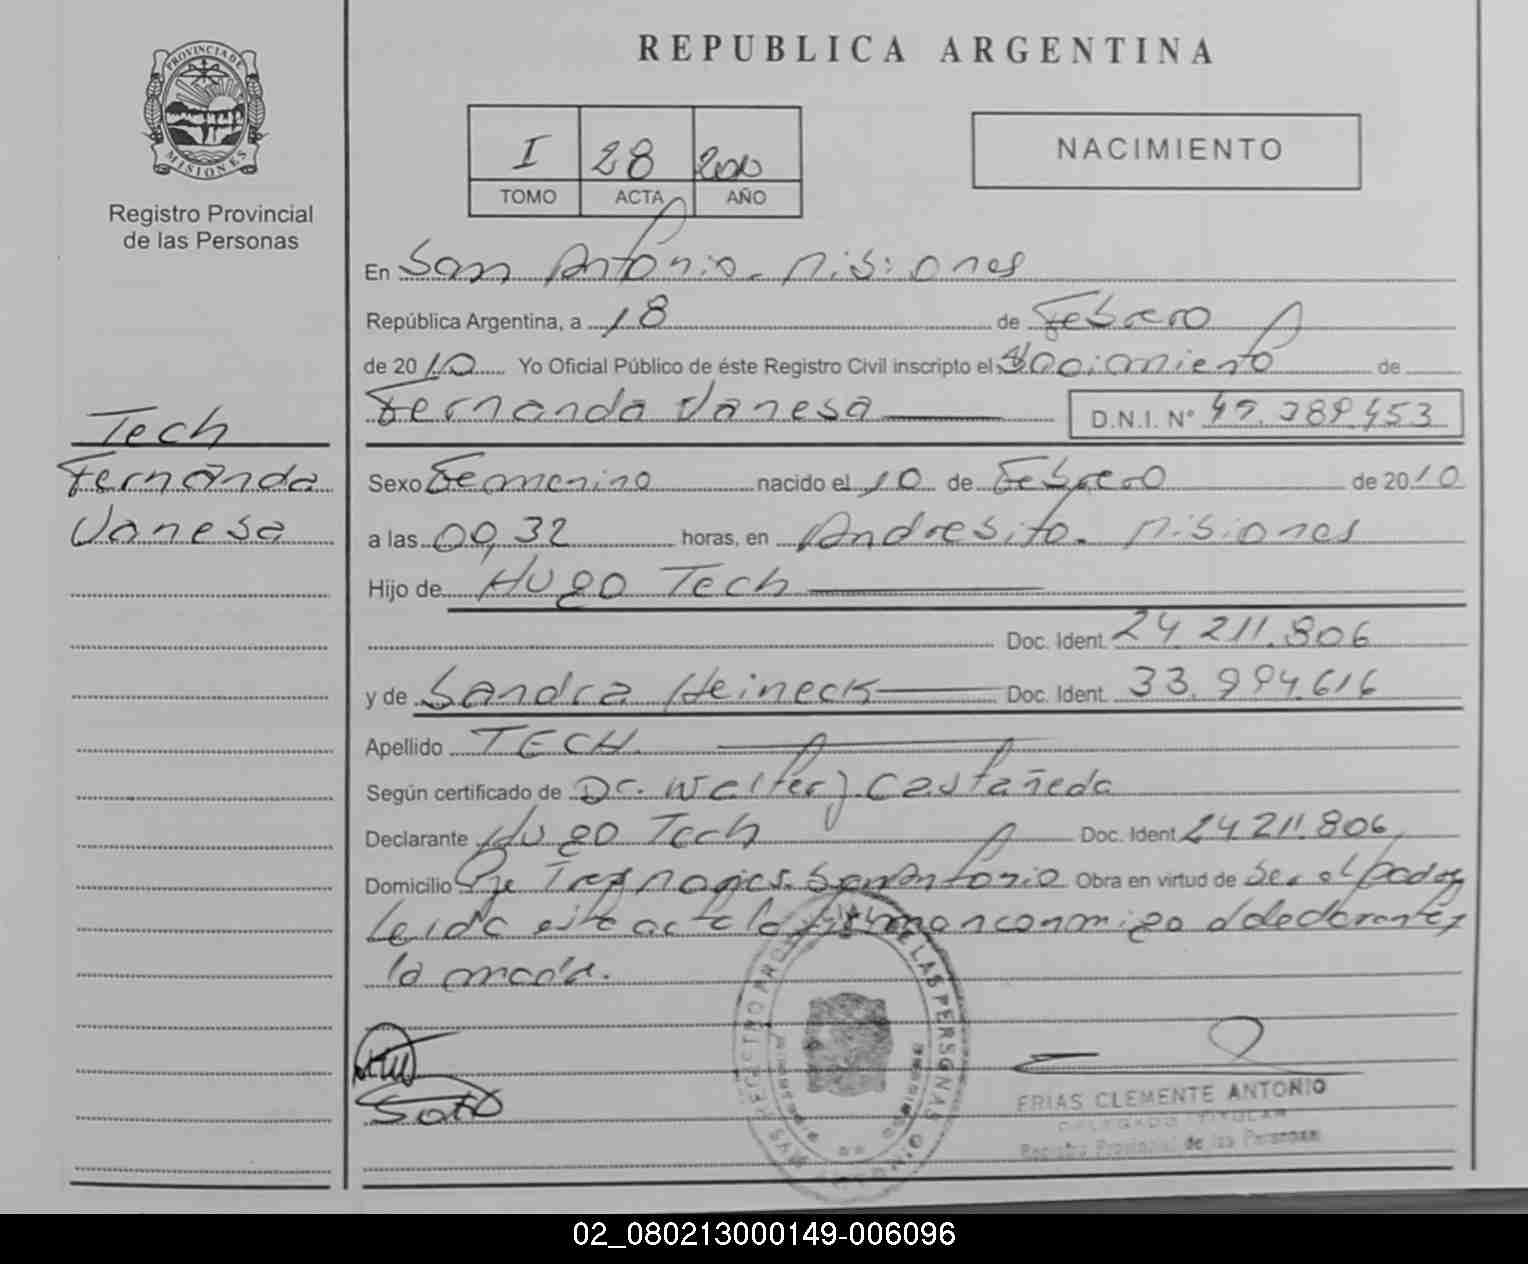 PROVINCIA DE
MISIONES
Registro Provincial
de las Personas
REPUBLICA ARGENTINA
I 28 2010
TOMO ACTA AÑO
NACIMIENTO
En San Antonio - Misiones
República Argentina, a 18 de Febrero
de 2010 Yo Oficial Público de éste Registro Civil inscripto el Nacimiento de
Fernanda Vanesa D.N.I. Nº 49.389.453
Tech
Fernanda
Vanesa
Sexo Femenino nacido el 10 de Febrero de 2010
a las 00,32 horas, en Andresito - Misiones
Hijo de Hugo Tech
Doc. Ident. 24.211.806
y de Sandra Heineck Doc. Ident. 33.994.616
Apellido TECH
Según certificado de Dr. Walter J. Castañeda
Declarante Hugo Tech Doc. Ident. 24.211.806
Domicilio San Antonio Obra en virtud de Ser el padre
Leida este acta la firman conmigo el declarante y
la madre.
FRIAS CLEMENTE ANTONIO
DELEGADO TITULAR
Registro Provincial de las Personas
DE LAS PERSONAS
02_080213000149-006096